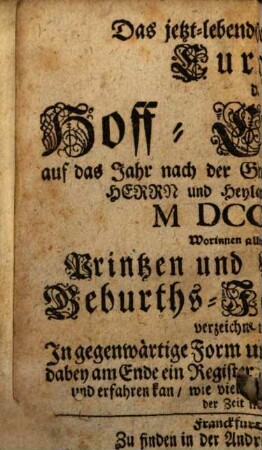 Das jetzt-lebend
Eur
Hoff-
auf das Jahr nach der
HERRN und Heyl
M DCC
Worinnen all
Printzen und
Geburths-
verzeichn
In gegenwärtige Form u
dabey am Ende ein Register
und erfahren kan/ wie viel
der Zeit
Franckfur
Zu finden in der Andre